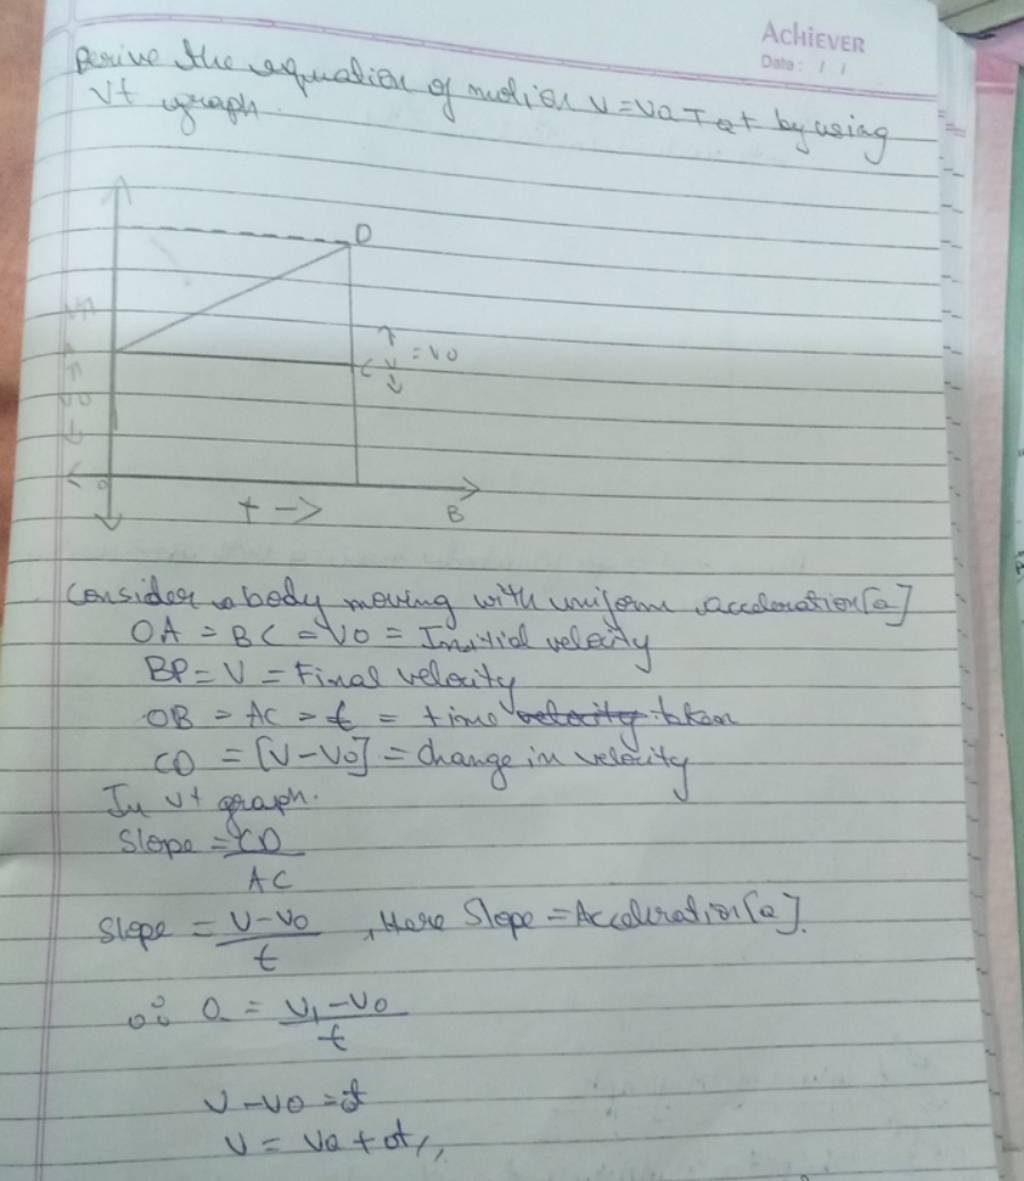 Achiever
Date: / /
Derive the equation of motion V=Vo+at by using
Vt graph.
D
= VO
V
O
t ->
B
Consider a body moving with uniform acceleration[a]
OA = BC = VO = Initial velocity
BD = V = Final velocity
OB = AC = t = time velocity taken
CD = [V-VO] = change in velocity
In vt graph.
Slope = CD
AC
Slope = V-VO , Here Slope = Acceleration[a].
t
∴ a = V1-VO
t
V-VO = at
V = Vo + at//